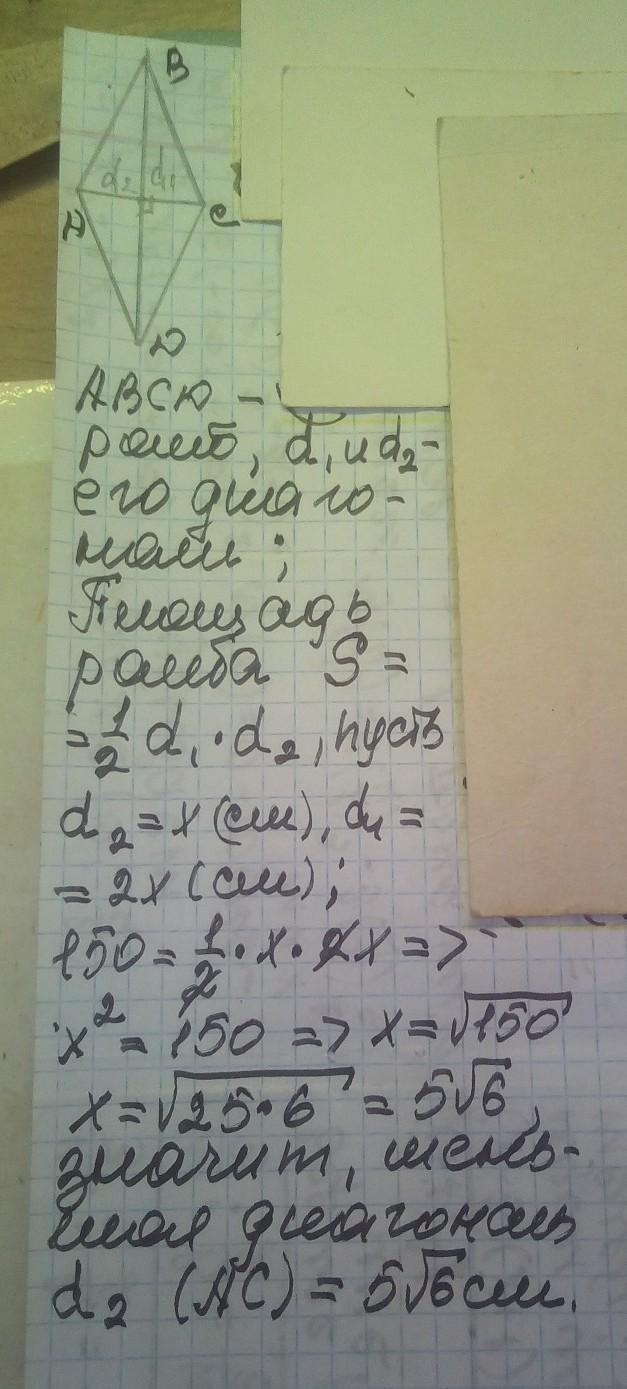 В
d₂ d₁
А
С
D
АВСD –
ромб, d₁ и d₂ –
его диаго-
нали;
Площадь
ромба S =
= 1/2 d₁ · d₂, пусть
d₂ = x (см), d₁ =
= 2x (см);
150 = 1/2 · x · 2x =>
x² = 150 => x = √150
x = √25·6 = 5√6,
значит, мень-
шая диагональ
d₂ (АС) = 5√6 см.